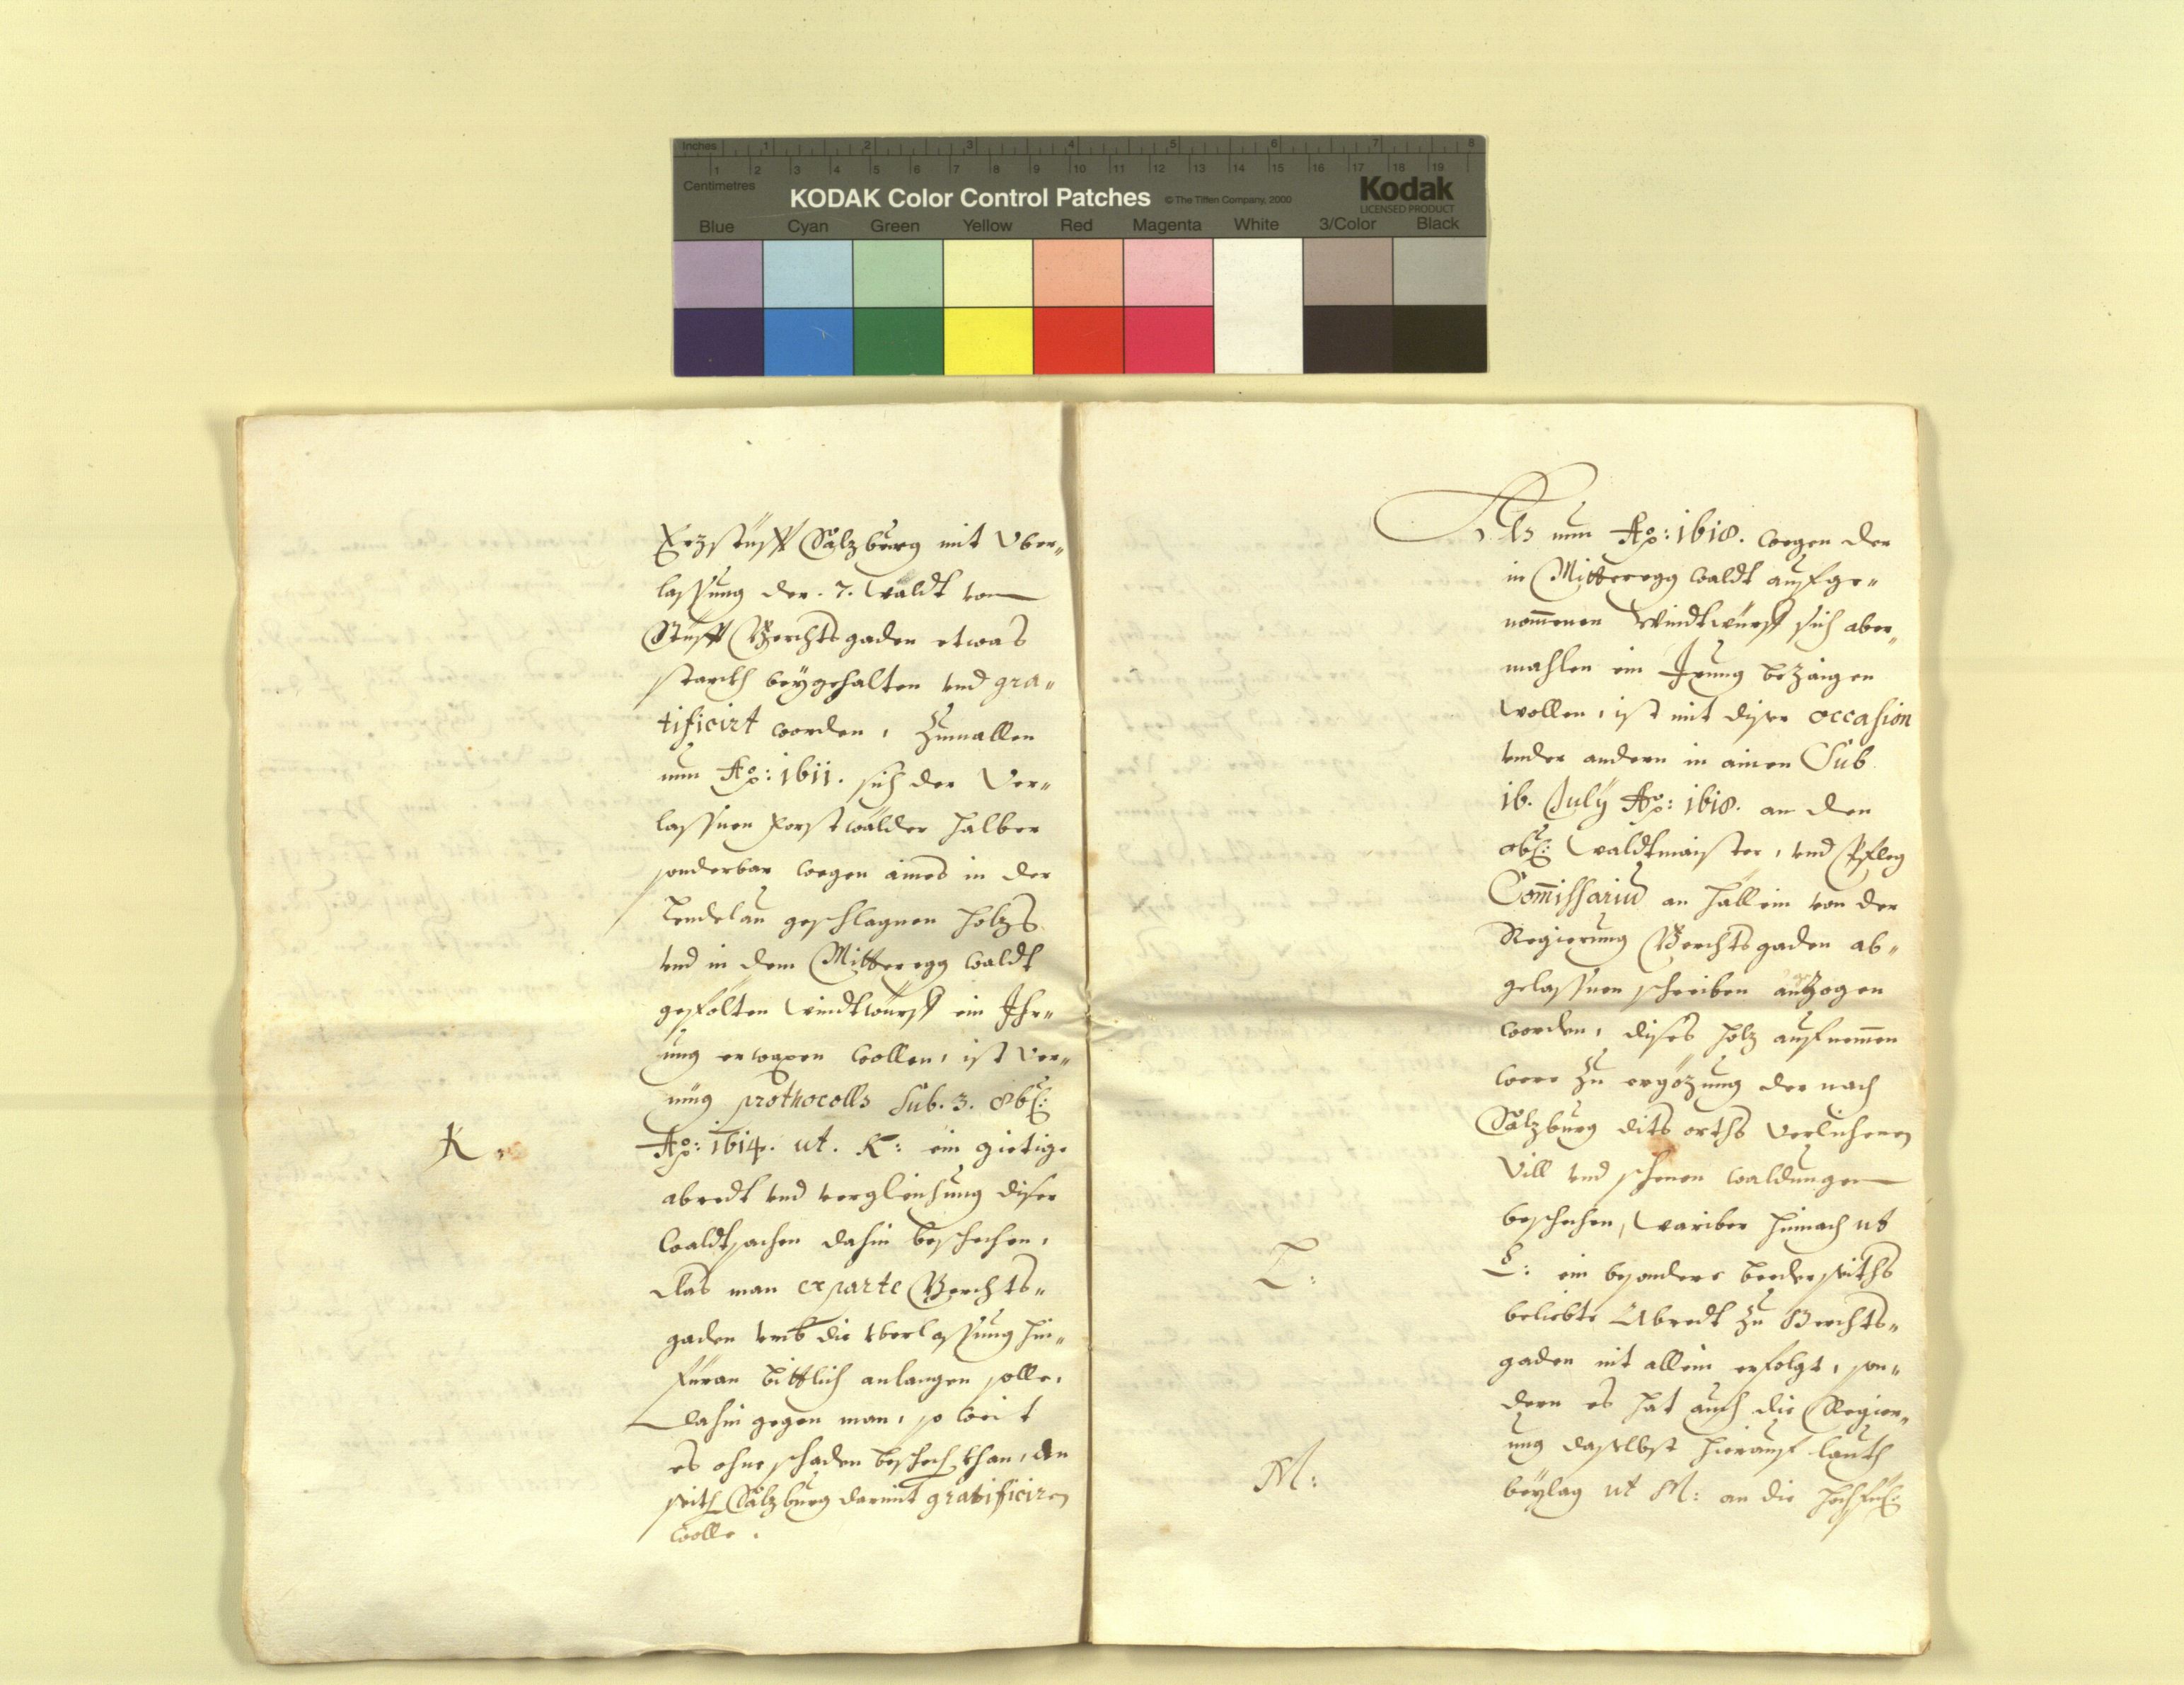 Inches 1 2 3 4 5 6 7 8
1 2 3 4 5 6 7 8 9 10 11 12 13 14 15 16 17 18 19
Centimetres
KODAK Color Control Patches © The Tiffen Company, 2000 Kodak
LICENSED PRODUCT
Blue Cyan Green Yellow Red Magenta White 3/Color Black
Erzstüfft Salzburg mit Vber„
lassung der . 7 . Waldt vom
Stüfft Berchtsgaden etwas
starckh beÿgehalten vnd gra„
tificirt worden, Zumallen
nun Aō: 1611. sich der Ver„
lassnen Forstwälder halber
sonderbar wegen aines in der
geschlagnen holzs
vnd in dem Mitteregg Waldt
gefölten Windtwürff ein Ihr„
ung erwaxen wollen, ist Ver„
müg prothocolls Sub. 3. 8b
Aō: 1614. ut. K: ein gietige
K
abredt vnd vergleichung diser
Waldtsachen dahin beschechen,
das man ex parte Berchts„
gaden vmb die Vberlassung hin„
füran bittlich anlangen solle,
dahingegen man, so weit
es ohne schaden beschech khan, den
seith Salzburg darmit gratificiren
wolle.
Als nun Aō: 1618. wegen der
in Mitteregg Waldt aufge„
nom̄enen Windtwürff sich aber„
mahlen ein Irung bezaigen
wollen, ist mit diser occasion
vnder andern in ainen Sub
16. Julÿ Aō: 1618. an den
Waldtmaister, vnd Pfleg
Com̄issariū an Hällein von der
Regierung Berchtsgaden ab„
gelassnen schreiben anzogen
worden, dises holz aufnem̄en
were zu ergözung der nach
Salzburg dits orths Verlichenen
Vill vnd schenen waldungen
beschechen, Wariber hinnach ut
L: ein besondere beederseiths
L:
beliebte Abredt zu Berchts„
gaden nit allein erfolgt, son„
dern es hat auch die Regier„
ung daselbst hierauf lauth
beÿlag ut M: an die
M: